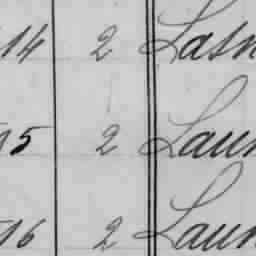 14 2 Lasn
15 2 Laun
16 2 Laun